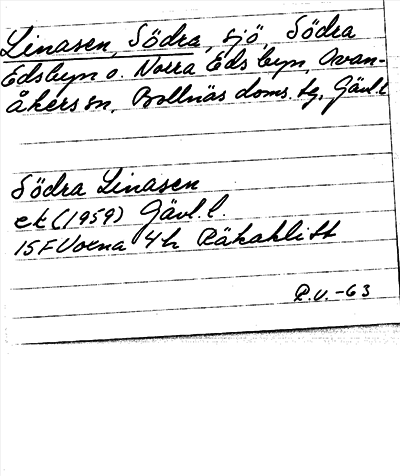 Linasen, Södra, sjö, Södra
Edsbyn o. Norra Edsbyn, Ovan-
åkers sn, Bollnäs doms. tg, Gävl. l
Södra Linasen
ek (1959) Gävl. l.
15F Voxna 4h Räkaklitt
P.V. -63